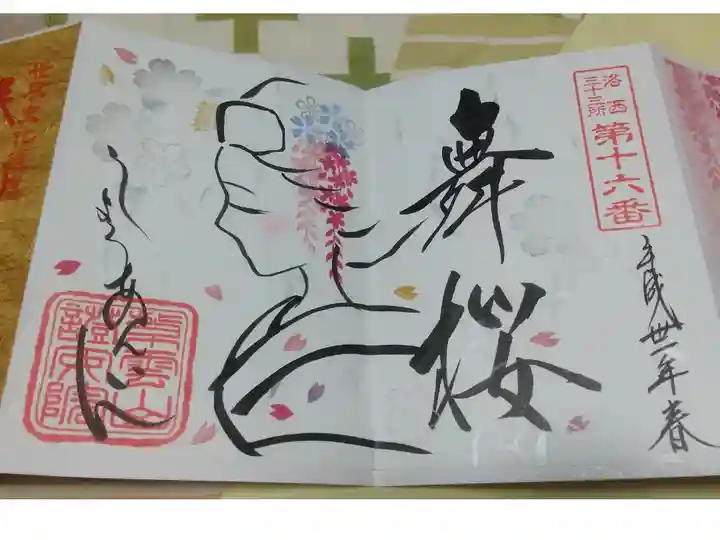 洛西
三十三所
第十六番
平成卅一年春
舞
桜
しょうあんいん
華雲山
證安院